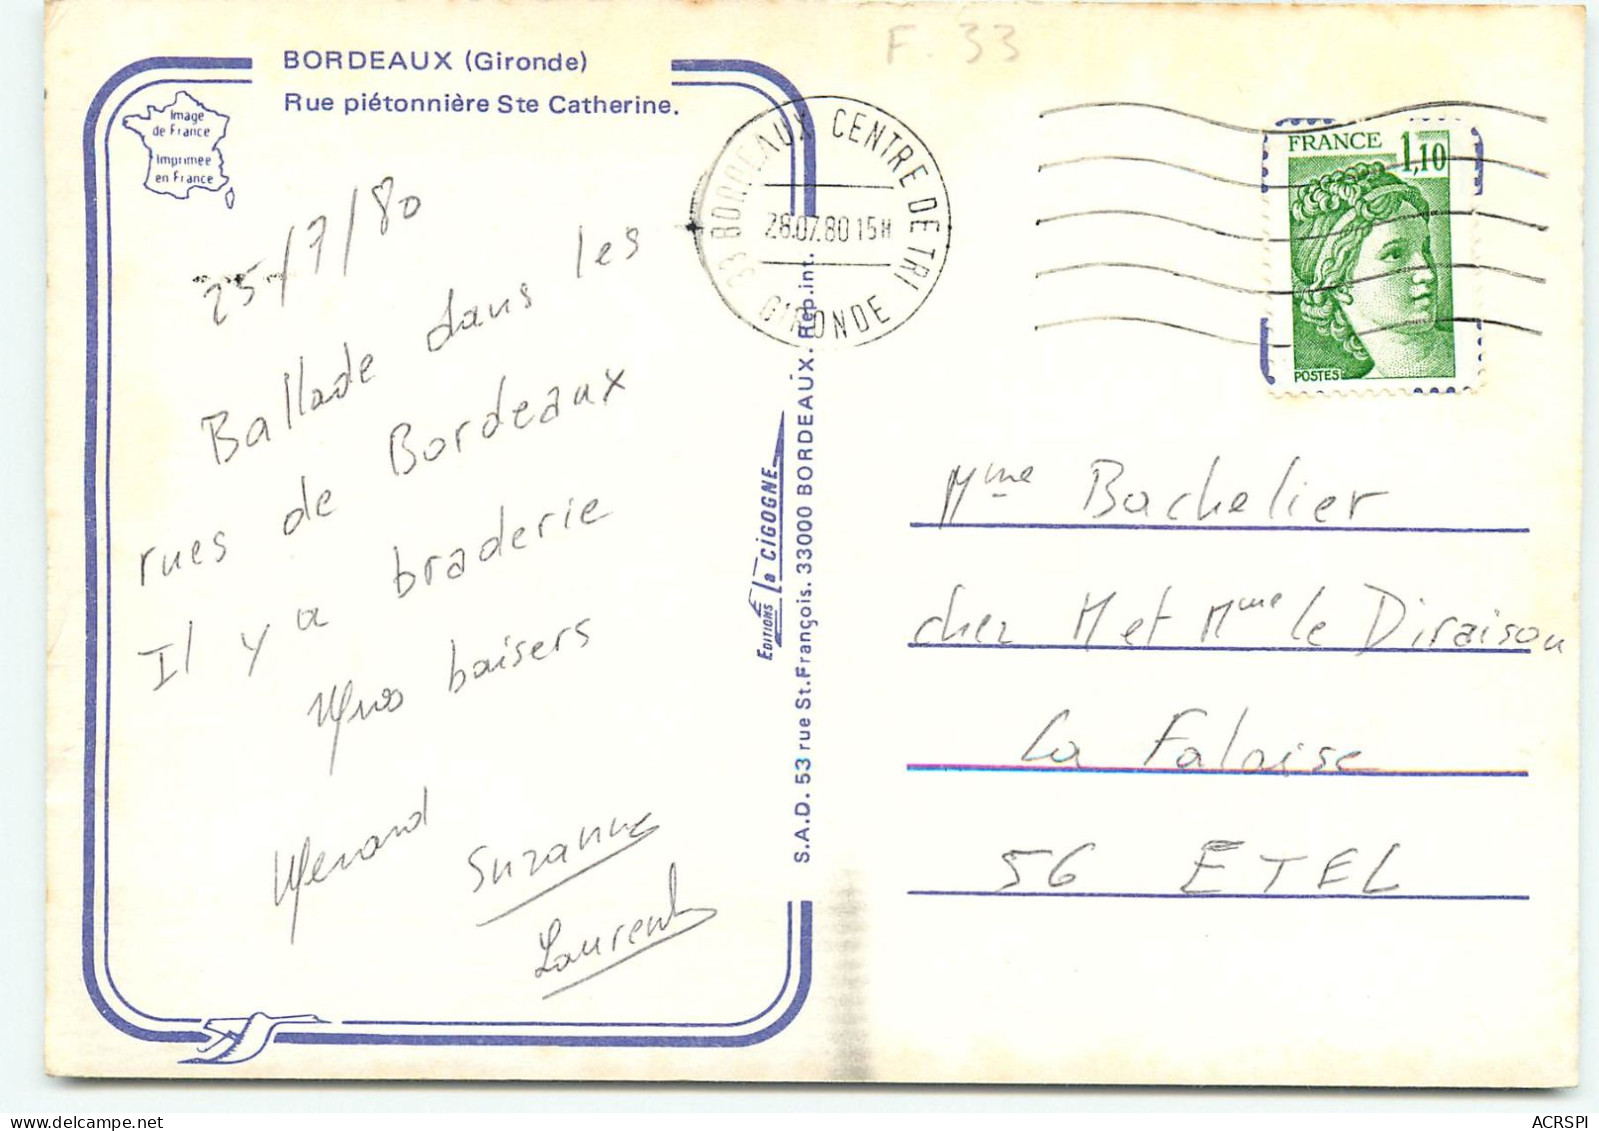 F. 33
BORDEAUX (Gironde)
Rue piétonnière Ste Catherine.
Image
de France
Imprimée
en France
25/7/80
Ballade dans les
rues de Bordeaux
Il y a braderie
baisers
Suzanne
Laurent
EDITIONS La CIGOGNE
S.A.D. 53 rue St. François. 33000 BORDEAUX. Rep. int.
33 BORDEAUX CENTRE DE TRI
28.07.80 15H
GIRONDE
FRANCE
1,10
POSTES
Mme Bachelier
chez M et Mme le Diraison
La Falaise
56 ETEL
ACRSPI